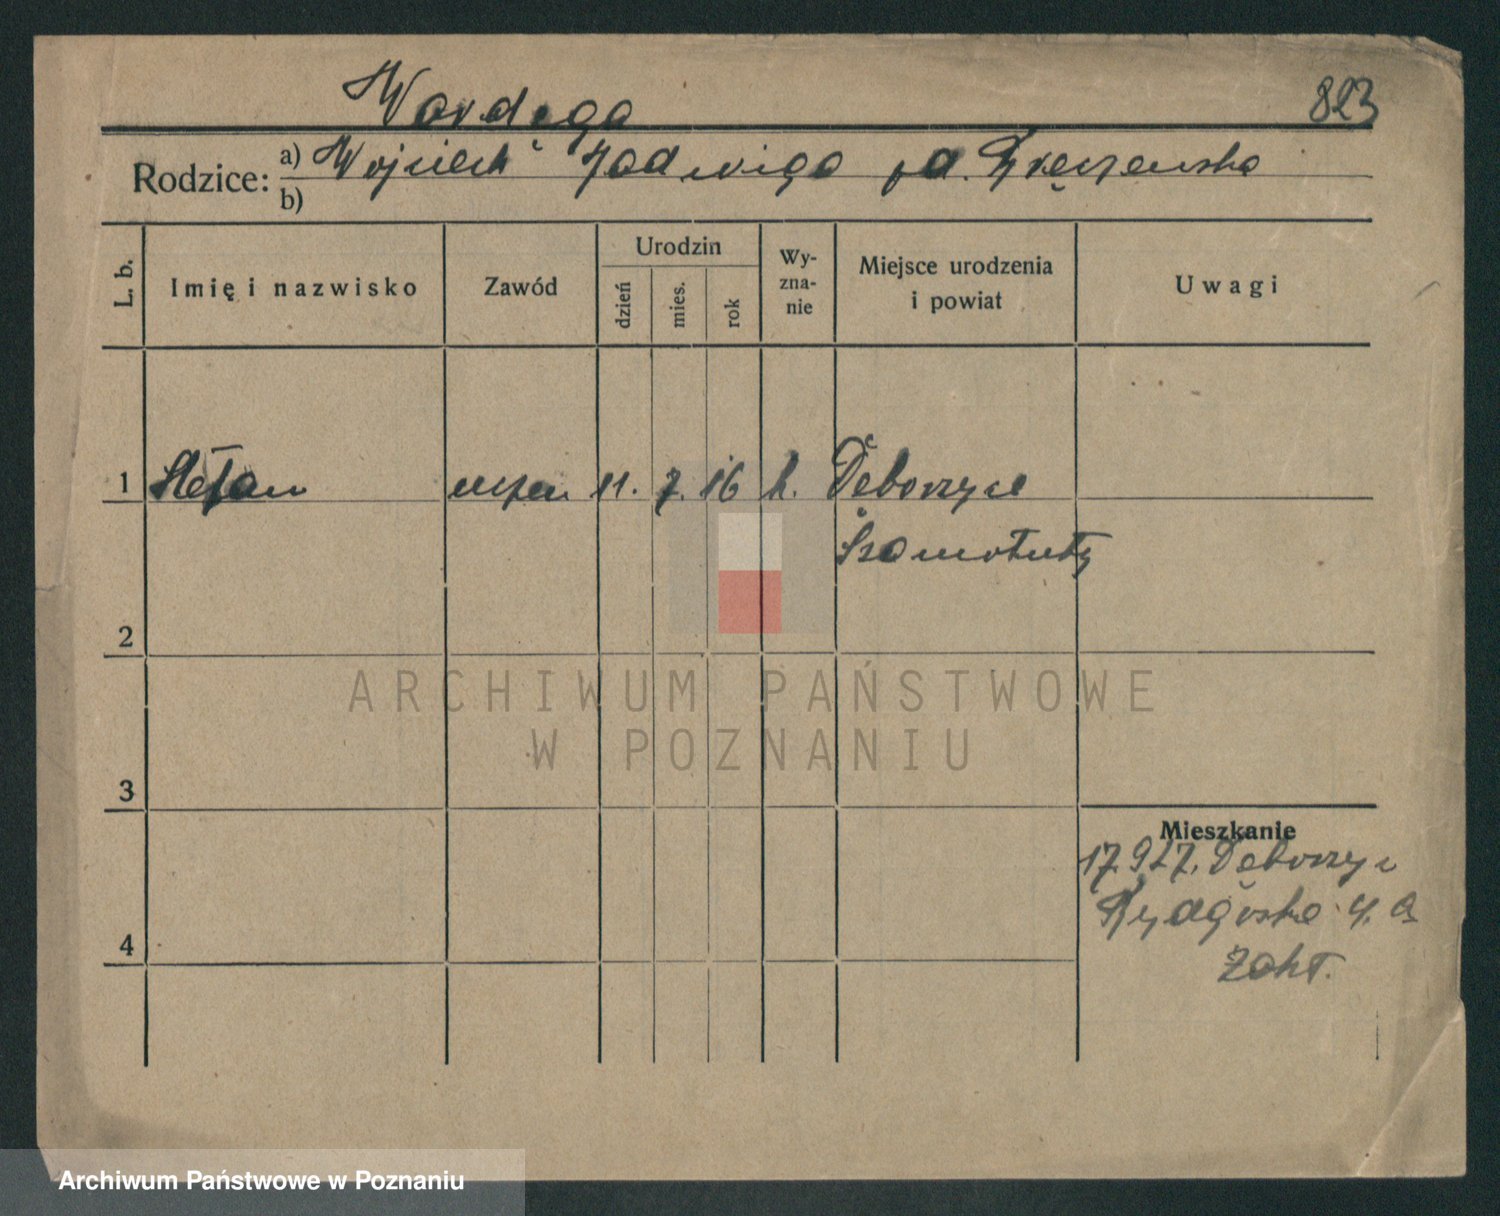 Wardęga
823
Rodzice: a) Wojciech i Jadwiga
b)
L. b.
Imię i nazwisko
Zawód
Urodzin
dzień
mies.
rok
Wy-
zna-
nie
Miejsce urodzenia
i powiat
Uwagi
1 Stefan uczeń 11. 7. 16 k.
Szamotuły
2
3
4
Mieszkanie
17.9.27.
Bydgoska 4.
ARCHIWUM PAŃSTWOWE
W POZNANIU
Archiwum Państwowe w Poznaniu